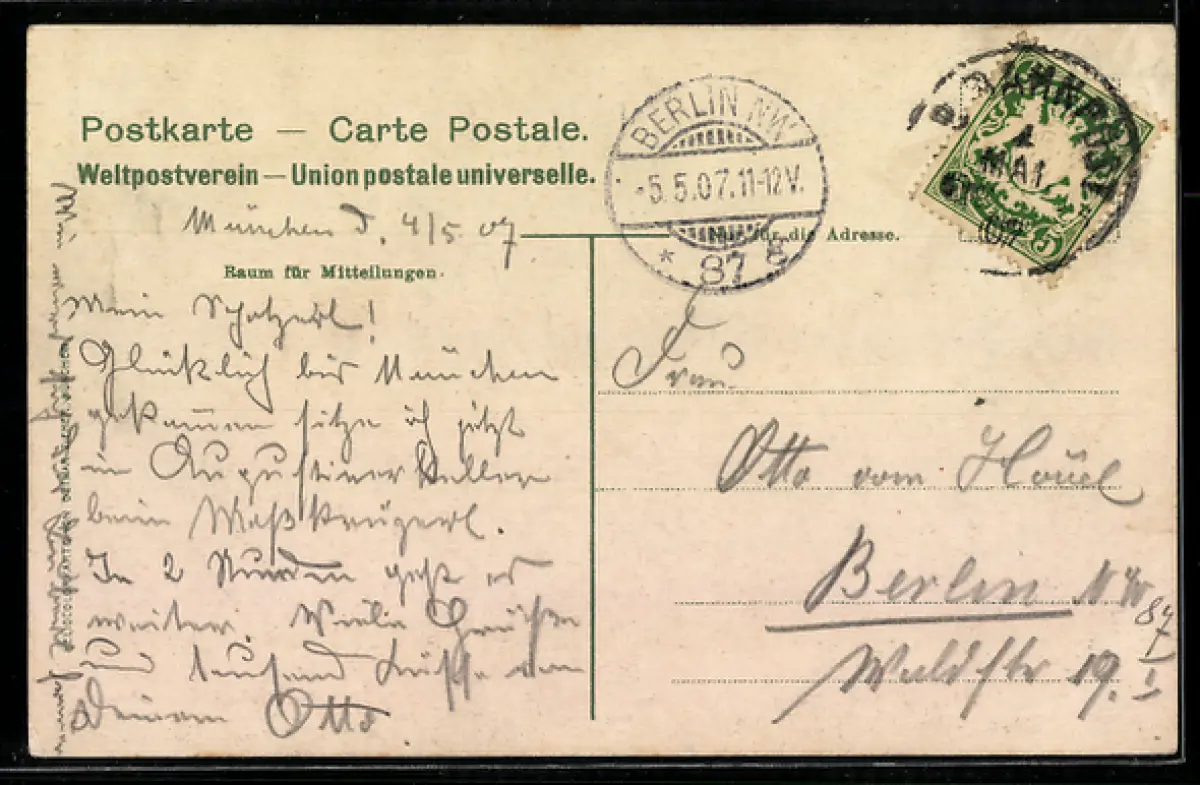 Postkarte — Carte Postale.
Weltpostverein — Union postale universelle.
München d. 4/5 07
Raum für Mitteilungen.
Mein Schatzerl!
Glücklich bis München
gekommen sitze ich jetzt
im Augustinerkeller
beim Maßkrügerl.
In 2 Stunden geht es
weiter. Viele Grüße
und tausend Küsse von
Deinem Otto
BERLIN NW
-5.5.07.11-12V.
* 87 g
BAHNPOST
MAI
07
5
Nur für die Adresse.
Frau
Otto vom
Berlin N.W.
87
Waldstr 19. I